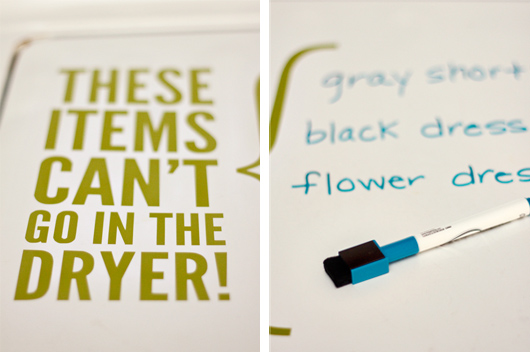 THESE
ITEMS
CAN'T
GO IN THE
DRYER!
gray short
black dress
flower dres